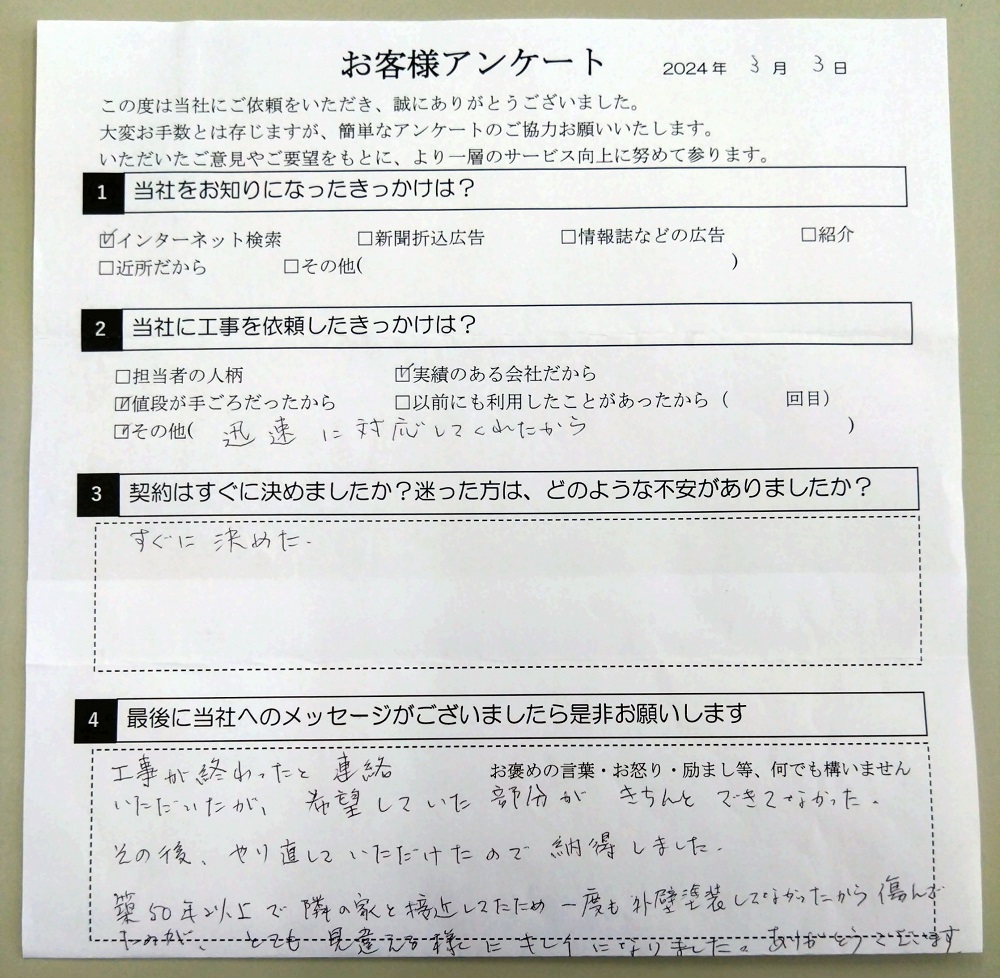 お客様アンケート 2024年 3月 3日
この度は当社にご依頼をいただき、誠にありがとうございました。
大変お手数とは存じますが、簡単なアンケートのご協力お願いいたします。
いただいたご意見やご要望をもとに、より一層のサービス向上に努めて参ります。
1 当社をお知りになったきっかけは？
☑インターネット検索 □新聞折込広告 □情報誌などの広告 □紹介
□近所だから □その他( )
2 当社に工事を依頼したきっかけは？
□担当者の人柄 ☑実績のある会社だから
☑値段が手ごろだったから □以前にも利用したことがあったから（ 回目）
☑その他( 迅速に対応してくれたから )
3 契約はすぐに決めましたか？迷った方は、どのような不安がありましたか？
すぐに決めた.
4 最後に当社へのメッセージがございましたら是非お願いします
お褒めの言葉・お怒り・励まし等、何でも構いません
工事が終わったと連絡
いただいたが、希望していた部分がきちんとできてなかった。
その後、やり直していただけたので納得しました.
築50年以上で隣の家と接近してたため一度も外壁塗装してなかったから傷んで
たのが、とても見違える様にキレイになりました。ありがとうございます